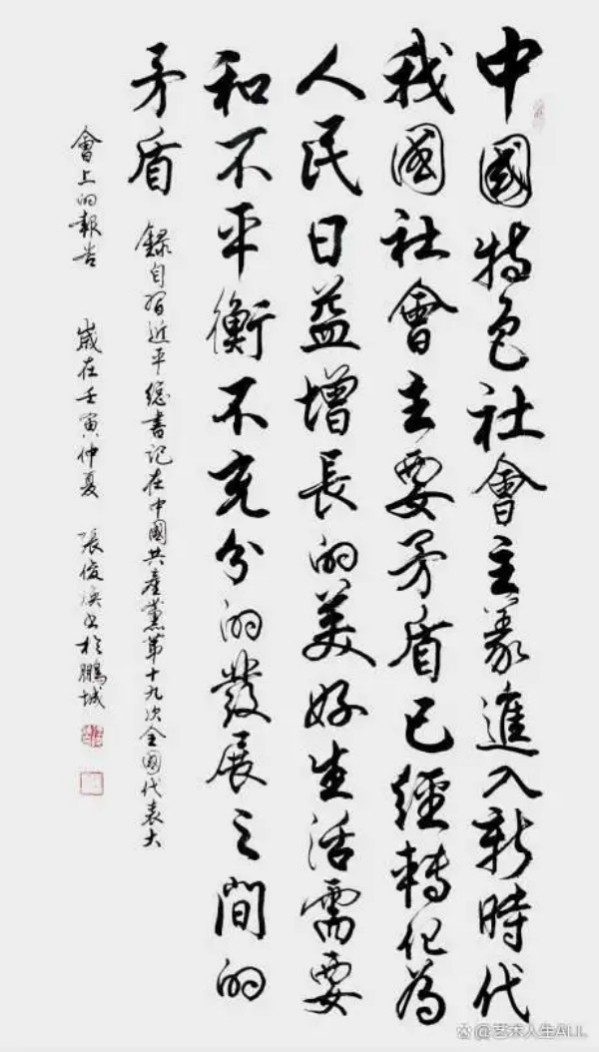 中國特色社會主義進入新時代
我國社會主要矛盾已經轉化為
人民日益增長的美好生活需要
和不平衡不充分的發展之間的
矛盾
錄自習近平總書記在中國共產黨第十九次全國代表大
會上的報告 歲在壬寅仲夏 張俊煥書於鵬城
@艺术人生ALL